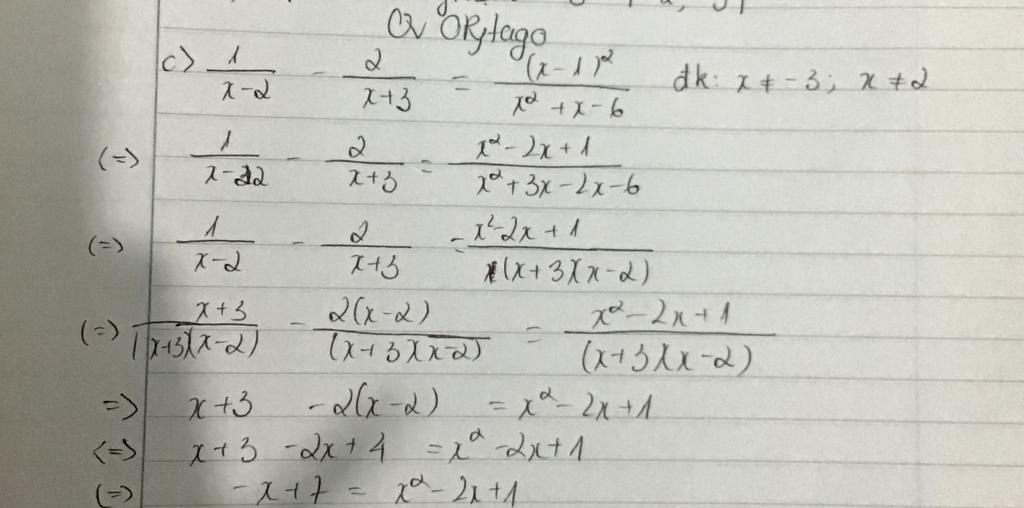 CV ORytago
c) 1/(x-2) - 2/(x+3) = (x-1)²/(x²+x-6) đk: x ≠ -3; x ≠ 2
(=) 1/(x-2) - 2/(x+3) = (x²-2x+1)/(x²+3x-2x-6)
(=) 1/(x-2) - 2/(x+3) = (x²-2x+1)/((x+3)(x-2))
(=) (x+3)/((x+3)(x-2)) - 2(x-2)/((x+3)(x-2)) = (x²-2x+1)/((x+3)(x-2))
=> x+3 -2(x-2) = x²-2x+1
<=> x+3 -2x+4 = x²-2x+1
(=) -x+7 = x²-2x+1